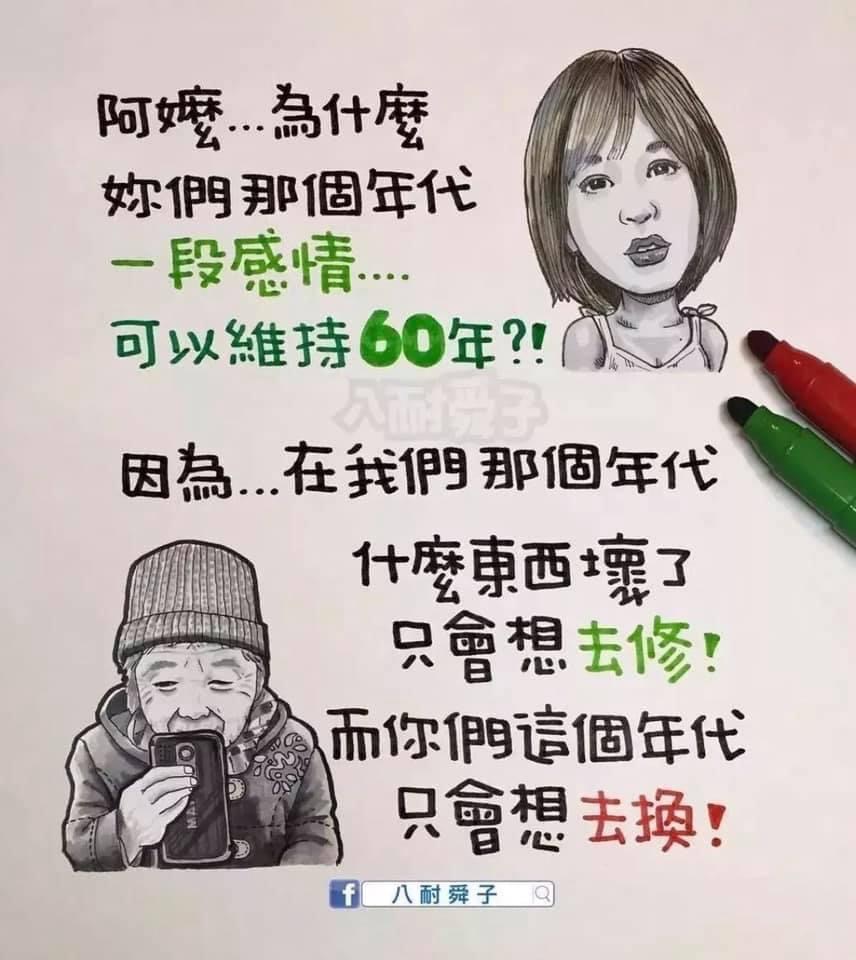 阿嬤...為什麼
妳們那個年代
一段感情....
可以維持60年?!
八耐舜子
因為...在我們那個年代
什麼東西壞了
只會想去修!
而你們這個年代
只會想去換!
八耐舜子